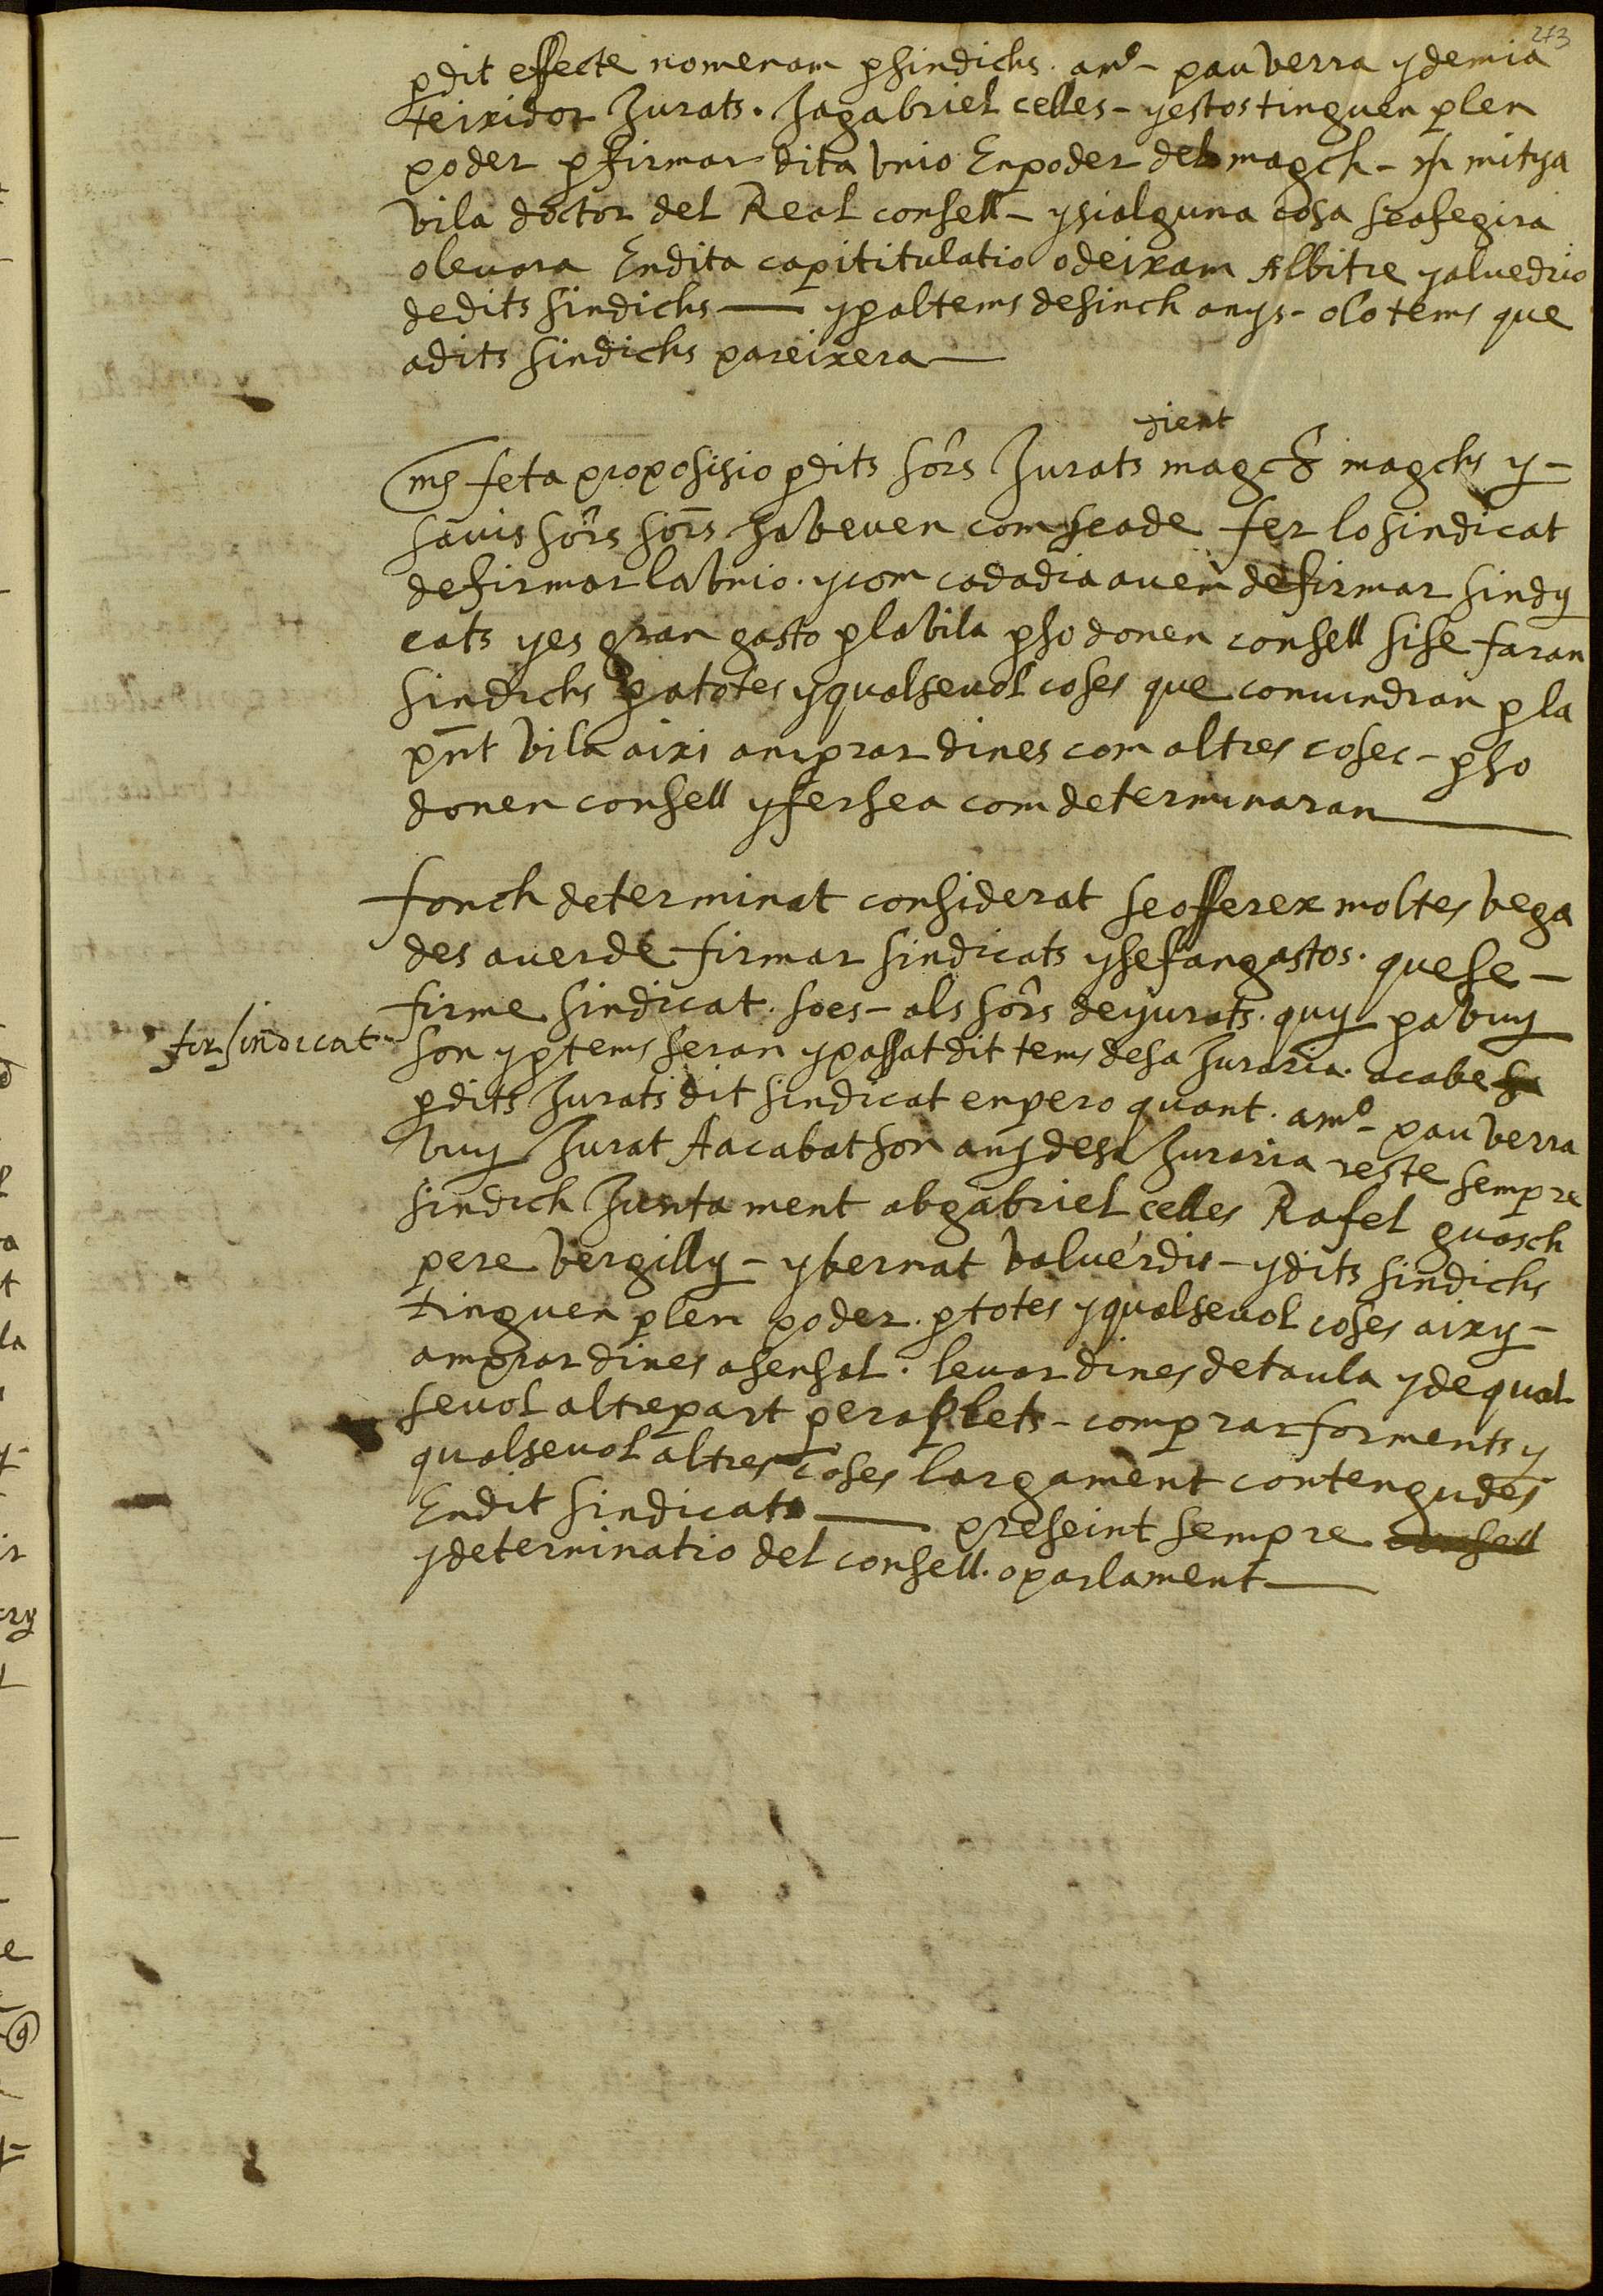 273
pdit effecte nomenam psindichs. amº - pau verra y demia
teixidor Jurats. Ja gabriel celles - y estos tinguen plen
poder p firmar dita vnio En poder del magch - mitya
vila doctor del Real consell - y si alguna cosa se afegira
o leuara En dita capititulatio o deixam Albitre y aluedrio
de dits sindichs — y p al tems de sinch anys - o lo tems que
a dits sindichs pareixera —
dient
ms feta proposisio p dits sörs Jurats magch magchs y -
sauis sörs sörs ja veuen com se a de fer lo sindicat
de firmar la vnio. y com cada dia auem de firmar sindy
cats y es gran gasto p la vila p so donen consell si se faran
sindichs p a totes y qualseuol coses que conuindran p la
pnt vila aixi amprar dines com altres coses - p so
donen consell y fer sea com determinaran —
fonch determinat considerat se offerex moltes vega
des auer de firmar sindicats y se fan gastos. que se -
firme sindicat. so es - als sörs de jurats. quy p a vuy
fir sindicat
son y p tems seran y passat dit tems de sa Juraria. acabe
p dits Jurats dit sindicat enpero quant. amº - pau verra
vuy Jurat A acabat son any de sa Juraria reste sempre
sindich Junta ment ab gabriel celles Rafel guasch
pere vergilly - y bernat valuerdis - y dits sindichs
tinguen plen poder. p totes y qualseuol coses aixy -
amprar dines a sensal. leuar dines de taula y de qual
seuol altre part pera plets - comprar forments y
qualseuol altres coses largament contengudes
En dit sindicat — preseint sempre consell
y determinatio del consell. o parlament —